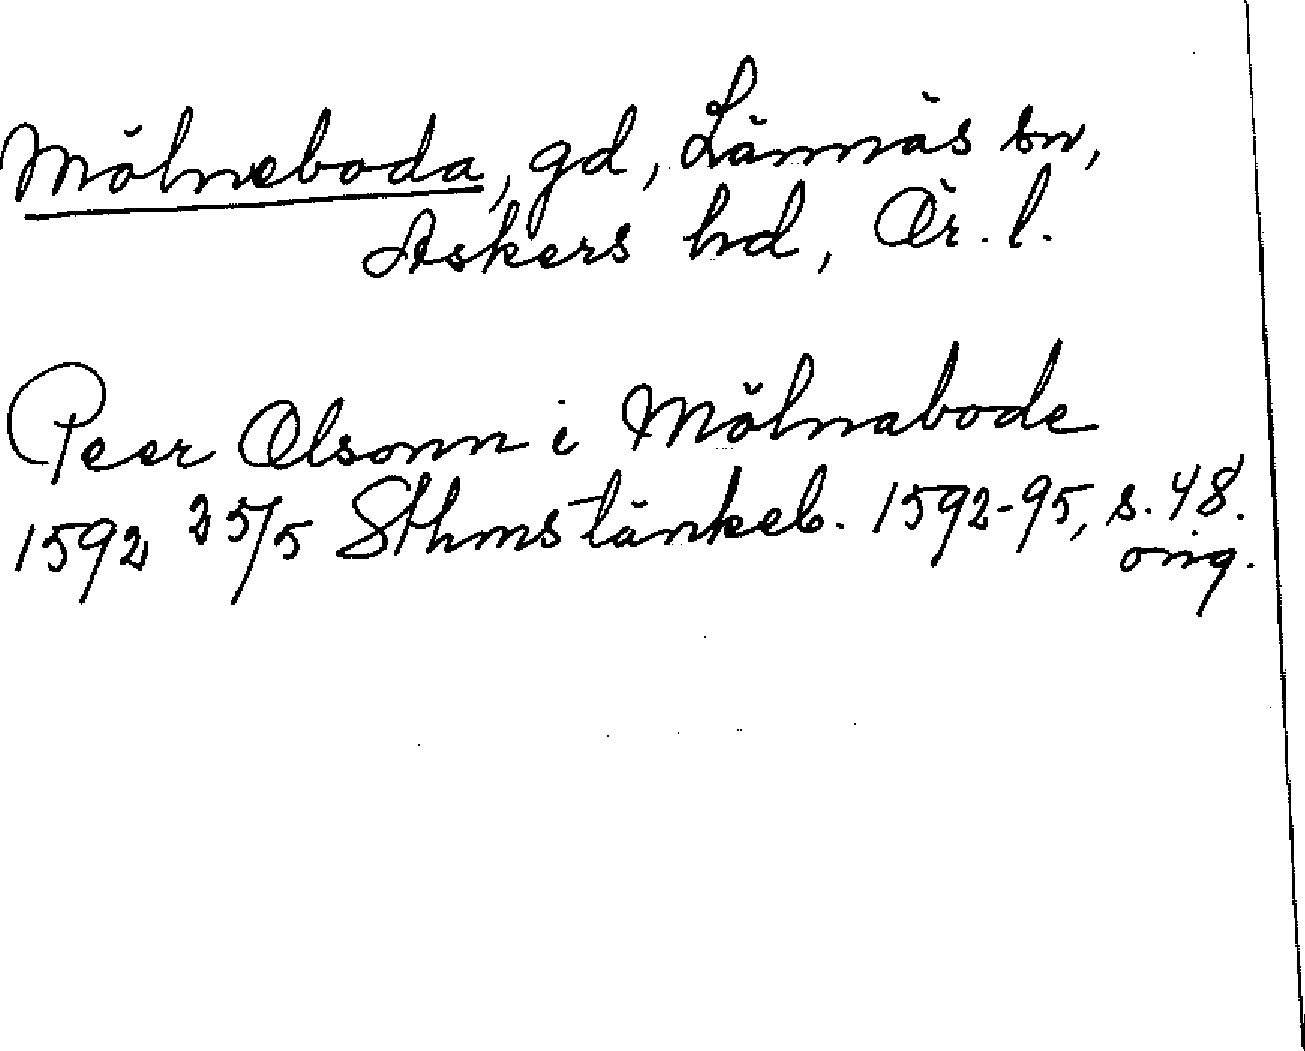 Mölneboda, gd, Lännäs sn,
Askers hd, Ör. l.
Peer Olsonn i Mölnabode
1592 25/5 Sthms tänkeb. 1592-95, s. 48.
orig.